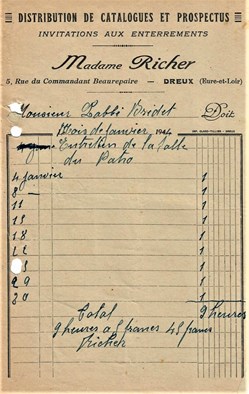 DISTRIBUTION DE CATALOGUES ET PROSPECTUS
INVITATIONS AUX ENTERREMENTS
Madame Richer
5, Rue du Commandant Beaurepaire — DREUX (Eure-et-Loir)
Monsieur l'abbé Bridet Doit
Mois de Janvier, 194
Entretien de la salle
du Patro
4 janvier 1
8 1
11 1
15 1
18 1
22 1
25 1
29 1
30 1
Total 9 heures
9 heures à 5 francs 45 francs
Richer